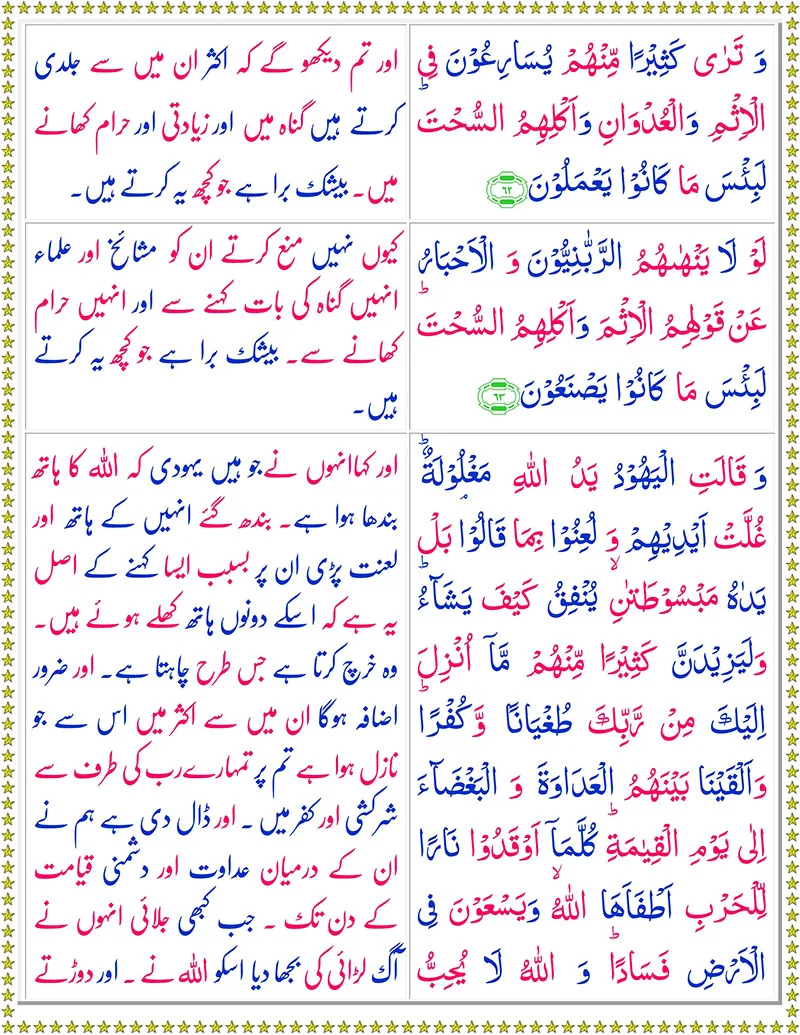 وَ تَرٰی كَثِیْرًا مِّنْهُمْ یُسَارِعُوْنَ فِی
الْاِثْمِ وَالْعُدْوَانِ وَاَكْلِهِمُ السُّحْتَؕ
لَبِئْسَ مَا كَانُوْا یَعْمَلُوْنَ ۶۲
اور تم دیکھو گے کہ اکثر ان میں سے جلدی
کرتے ہیں گناہ میں اور زیادتی اور حرام کھانے
میں۔ بیشک برا ہے جو کچھ یہ کرتے ہیں۔
لَوْ لَا یَنْهٰىهُمُ الرَّبّٰنِیُّوْنَ وَ الْاَحْبَارُ
عَنْ قَوْلِهِمُ الْاِثْمَ وَاَكْلِهِمُ السُّحْتَؕ
لَبِئْسَ مَا كَانُوْا یَصْنَعُوْنَ ۶۳
کیوں نہیں منع کرتے ان کو مشائخ اور علماء
انہیں گناہ کی بات کہنے سے اور انہیں حرام
کھانے سے۔ بیشک برا ہے جو کچھ یہ کرتے
ہیں۔
وَ قَالَتِ الْیَهُوْدُ یَدُ اللّٰهِ مَغْلُوْلَةٌؕ
غُلَّتْ اَیْدِیْهِمْ وَ لُعِنُوْا بِمَا قَالُوْاۘ بَلْ
یَدٰهُ مَبْسُوْطَتٰنِۙ یُنْفِقُ كَیْفَ یَشَآءُؕ
وَلَیَزِیْدَنَّ كَثِیْرًا مِّنْهُمْ مَّاۤ اُنْزِلَ
اِلَیْكَ مِنْ رَّبِّكَ طُغْیَانًا وَّكُفْرًاؕ
وَاَلْقَیْنَا بَیْنَهُمُ الْعَدَاوَةَ وَ الْبَغْضَآءَ
اِلٰی یَوْمِ الْقِیٰمَةِؕ كُلَّمَاۤ اَوْقَدُوْا نَارًا
لِّلْحَرْبِ اَطْفَاَهَا اللّٰهُۙ وَیَسْعَوْنَ فِی
الْاَرْضِ فَسَادًاؕ وَ اللّٰهُ لَا یُحِبُّ
اور کہا انہوں نے جو ہیں یہودی کہ اللہ کا ہاتھ
بندھا ہوا ہے۔ بندھ گئے انہیں کے ہاتھ اور
لعنت پڑی ان پر بسبب ایسا کہنے کے اصل
یہ ہے کہ اسکے دونوں ہاتھ کھلے ہوئے ہیں۔
وہ خرچ کرتا ہے جس طرح چاہتا ہے۔ اور ضرور
اضافہ ہوگا ان میں سے اکثر میں اس سے جو
نازل ہوا ہے تم پر تمہارے رب کی طرف سے
شرکشی اور کفر میں ۔ اور ڈال دی ہے ہم نے
ان کے درمیان عداوت اور دشمنی قیامت
کے دن تک ۔ جب کبھی جلائی انہوں نے
آگ لڑائی کی بجھا دیا اسکو اللہ نے ۔ اور دوڑتے